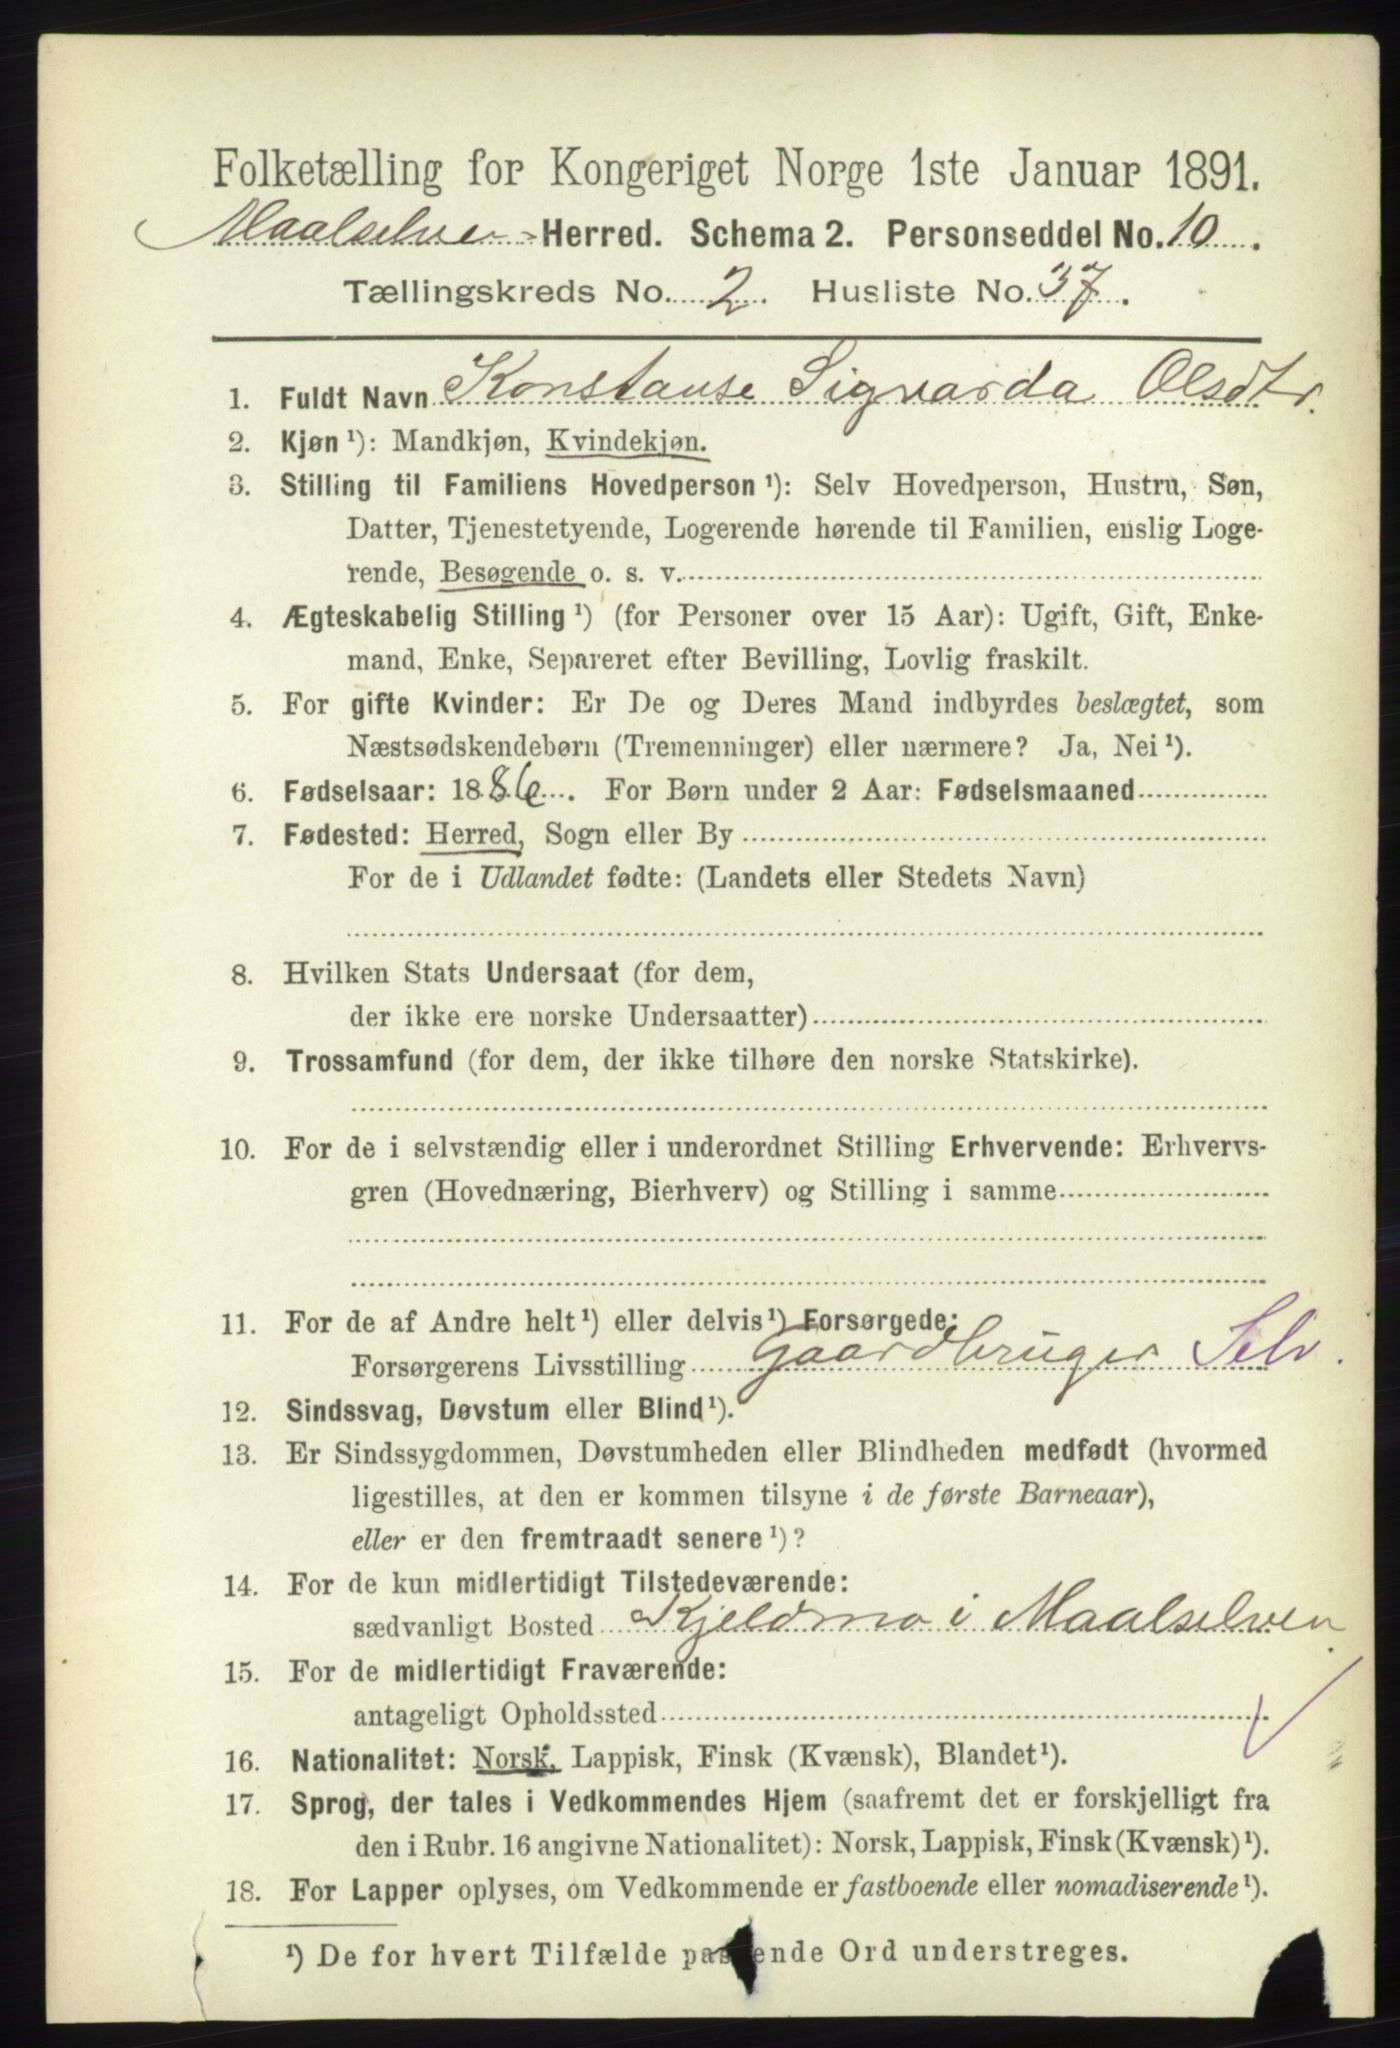 Folketælling for Kongeriget Norge 1ste Januar 1891.
Maalselven-Herred. Schema 2. Personseddel No. 10.
Tællingskreds No. 2. Husliste No. 37.
1. Fuldt Navn Konstanse Sigvarda Olsdtr.
2. Kjøn ¹): Mandkjøn, Kvindekjøn.
3. Stilling til Familiens Hovedperson ¹): Selv Hovedperson, Hustru, Søn,
Datter, Tjenestetyende, Logerende hørende til Familien, enslig Loge-
rende, Besøgende o. s. v.
4. Ægteskabelig Stilling ¹) (for Personer over 15 Aar): Ugift, Gift, Enke-
mand, Enke, Separeret efter Bevilling, Lovlig fraskilt.
5. For gifte Kvinder: Er De og Deres Mand indbyrdes beslægtet, som
Næstsødskendebørn (Tremenninger) eller nærmere? Ja, Nei ¹).
6. Fødselsaar: 1886. For Børn under 2 Aar: Fødselsmaaned
7. Fødested: Herred, Sogn eller By
For de i Udlandet fødte: (Landets eller Stedets Navn)
8. Hvilken Stats Undersaat (for dem,
der ikke ere norske Undersaatter)
9. Trossamfund (for dem, der ikke tilhøre den norske Statskirke).
10. For de i selvstændig eller i underordnet Stilling Erhvervende: Erhvervs-
gren (Hovednæring, Bierhverv) og Stilling i samme
11. For de af Andre helt ¹) eller delvis ¹) Forsørgede:
Forsørgerens Livsstilling Gaardbruger Selv.
12. Sindssvag, Døvstum eller Blind ¹).
13. Er Sindssygdommen, Døvstumheden eller Blindheden medfødt (hvormed
ligestilles, at den er kommen tilsyne i de første Barneaar),
eller er den fremtraadt senere ¹)?
14. For de kun midlertidigt Tilstedeværende:
sædvanligt Bosted Kjeldmo i Maalselven
15. For de midlertidigt Fraværende:
antageligt Opholdssted
16. Nationalitet: Norsk, Lappisk, Finsk (Kvænsk), Blandet ¹).
17. Sprog, der tales i Vedkommendes Hjem (saafremt det er forskjelligt fra
den i Rubr. 16 angivne Nationalitet): Norsk, Lappisk, Finsk (Kvænsk) ¹).
18. For Lapper oplyses, om Vedkommende er fastboende eller nomadiserende ¹).
¹) De for hvert Tilfælde passende Ord understreges.